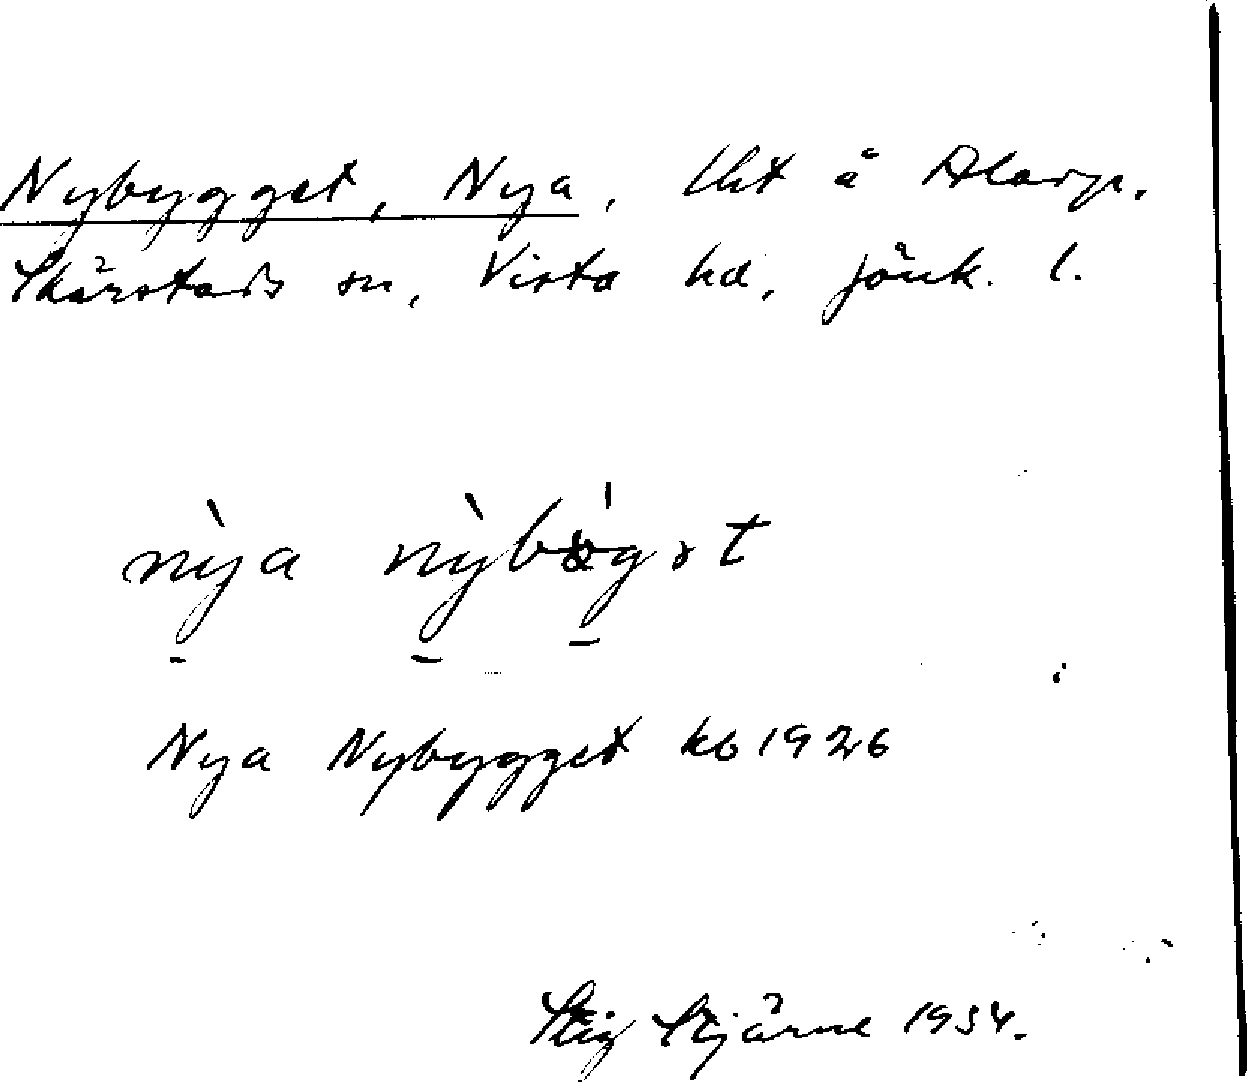 Nybygget, Nya, lht å Alarp.
Skärstads sn, Vista hd, Jönk. l.
nỳa nỳbögət
Nya Nybygget kb 1926
Stig Stjärne 1934.